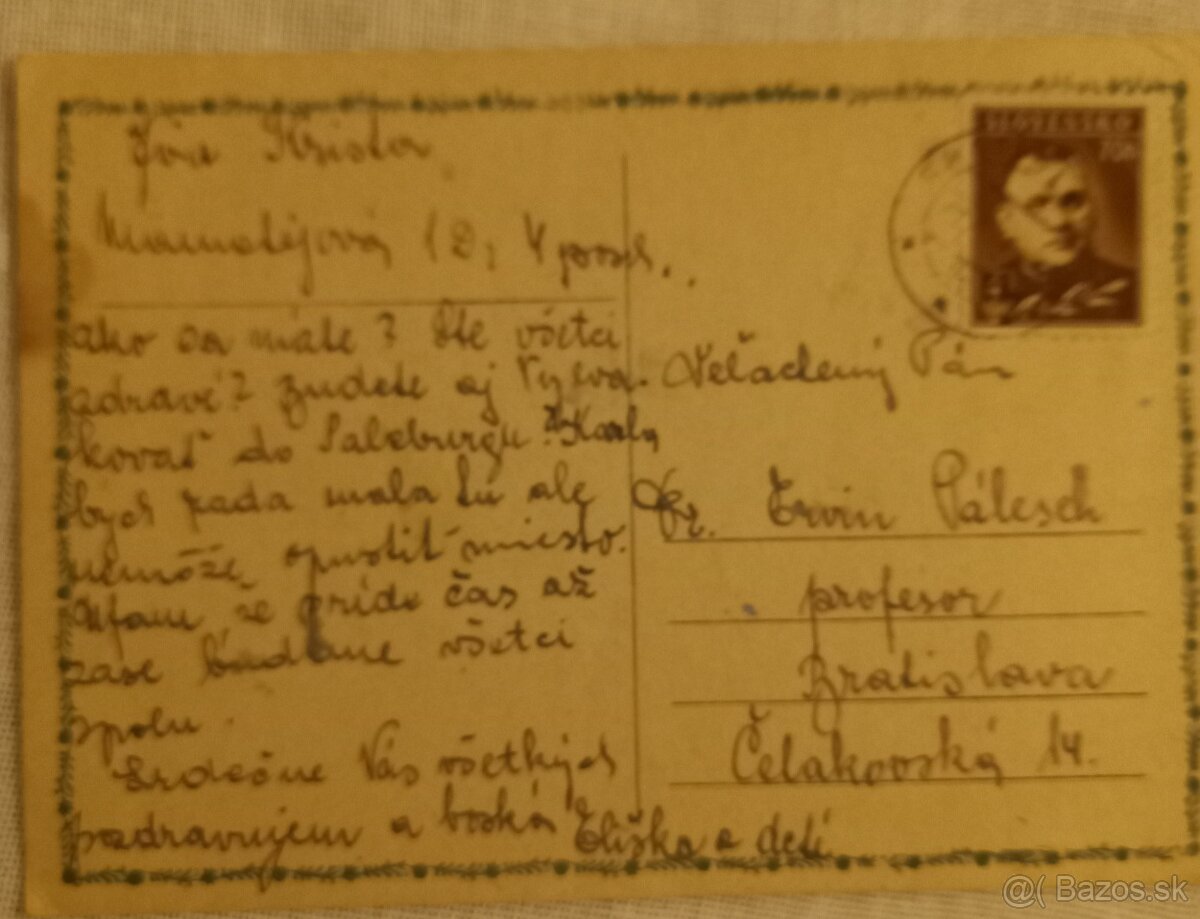 Kristov
ako sa máte? Ste všetci
zdravé? Budete aj Vy eva-
kovať do Salzburgu? Karla
bych rada mala tu ale
nemôže opustiť miesto.
Úfam že príde čas až
zase budeme všetci
spolu.
Srdečne Vás všetkých
pozdravujem a bozká Eliška a deti
SLOVENSKO
Veľactený Pán
Ervin Pálesch
profesor
Bratislava
Čelakovská 14.
@( Bazos.sk